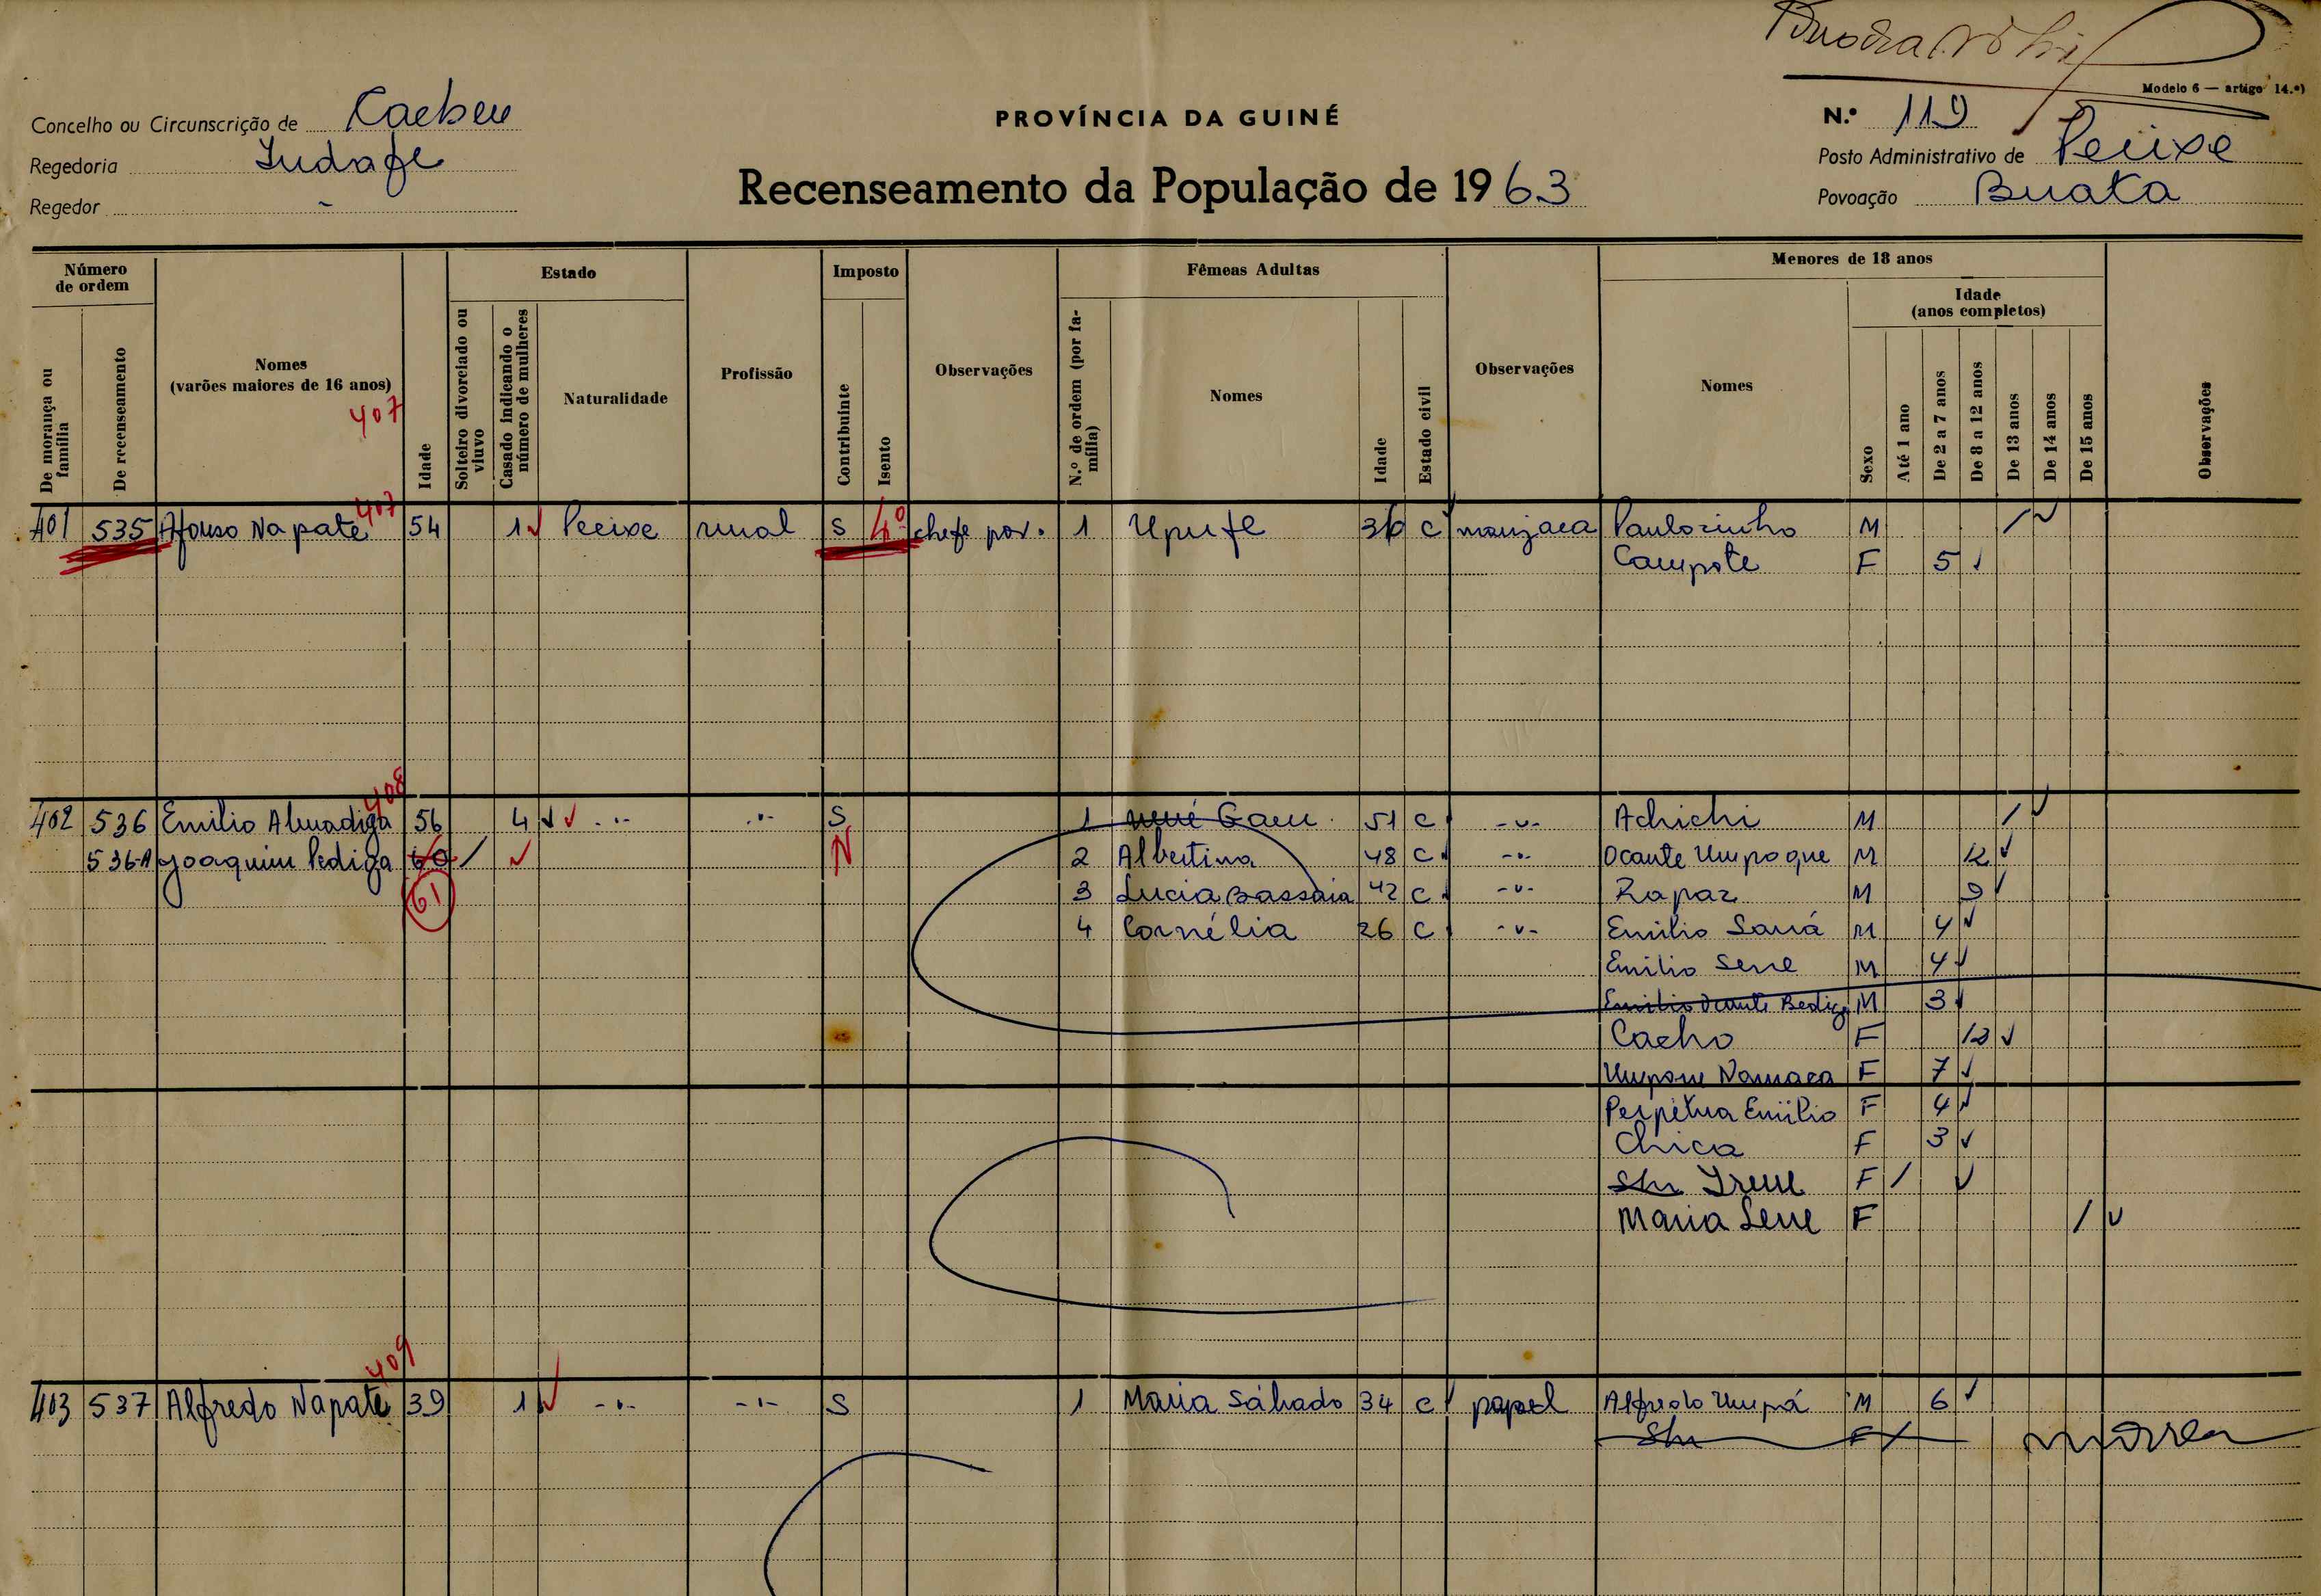 Modelo 6 — artigo 14.º)
Concelho ou Circunscrição de Caebeu
PROVÍNCIA DA GUINÉ
N.º 119
Regedoria Indafe
Recenseamento da População de 1963
Posto Administrativo de Peiixe
Regedor -
Povoação Buata
Número de ordem
Estado
Imposto
Fêmeas Adultas
Menores de 18 anos
Idade (anos completos)
De morança ou família
De recenseamento
Nomes (varões maiores de 16 anos)
407
Idade
Solteiro divorciado ou viuvo
Casado indicando o número de mulheres
Naturalidade
Profissão
Contribuinte
Isento
Observações
N.º de ordem (por família)
Nomes
Idade
Estado civil
Observações
Nomes
Sexo
Até 1 ano
De 2 a 7 anos
De 8 a 12 anos
De 13 anos
De 14 anos
De 15 anos
Observações
407
401 535 Afonso Napate 54 1 Peeixe rural S 4º chefe pov. 1 Upufe 36 C manjaca Paulozinho M /
Campote F 5
408
402 536 Emilio Almadiga 56 4 -"- -"- S 1 Gam 51 C -"- Achichi M /
536-A Joaquim Pediga 60 / N 2 Albertina 48 C -"- Ocante Umpoque M 12
61 3 Lucia Bassaia 42 C -"- Rapaz M 9
4 Cornélia 26 C -"- Emilio Saná M 4
Emilio Sene M 4
Emilio Ocante Bediga M 3
Cacho F 12
Umpone Namaca F 7
Perpétua Emilio F 4
Chica F 3
S/n Irene F /
Maria Sene F /
409
403 537 Alfredo Napate 39 1 -"- -"- S 1 Maria Sábado 34 C papel Alfredo Umpá M 6
S/n F /